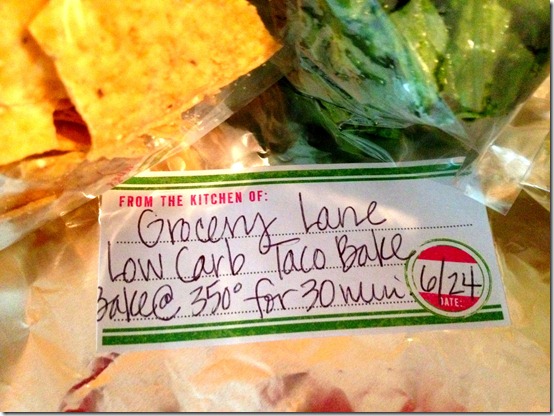 FROM THE KITCHEN OF:
Grocery Lane
Low Carb Taco Bake
Bake@ 350° for 30 min
6/24
DATE: